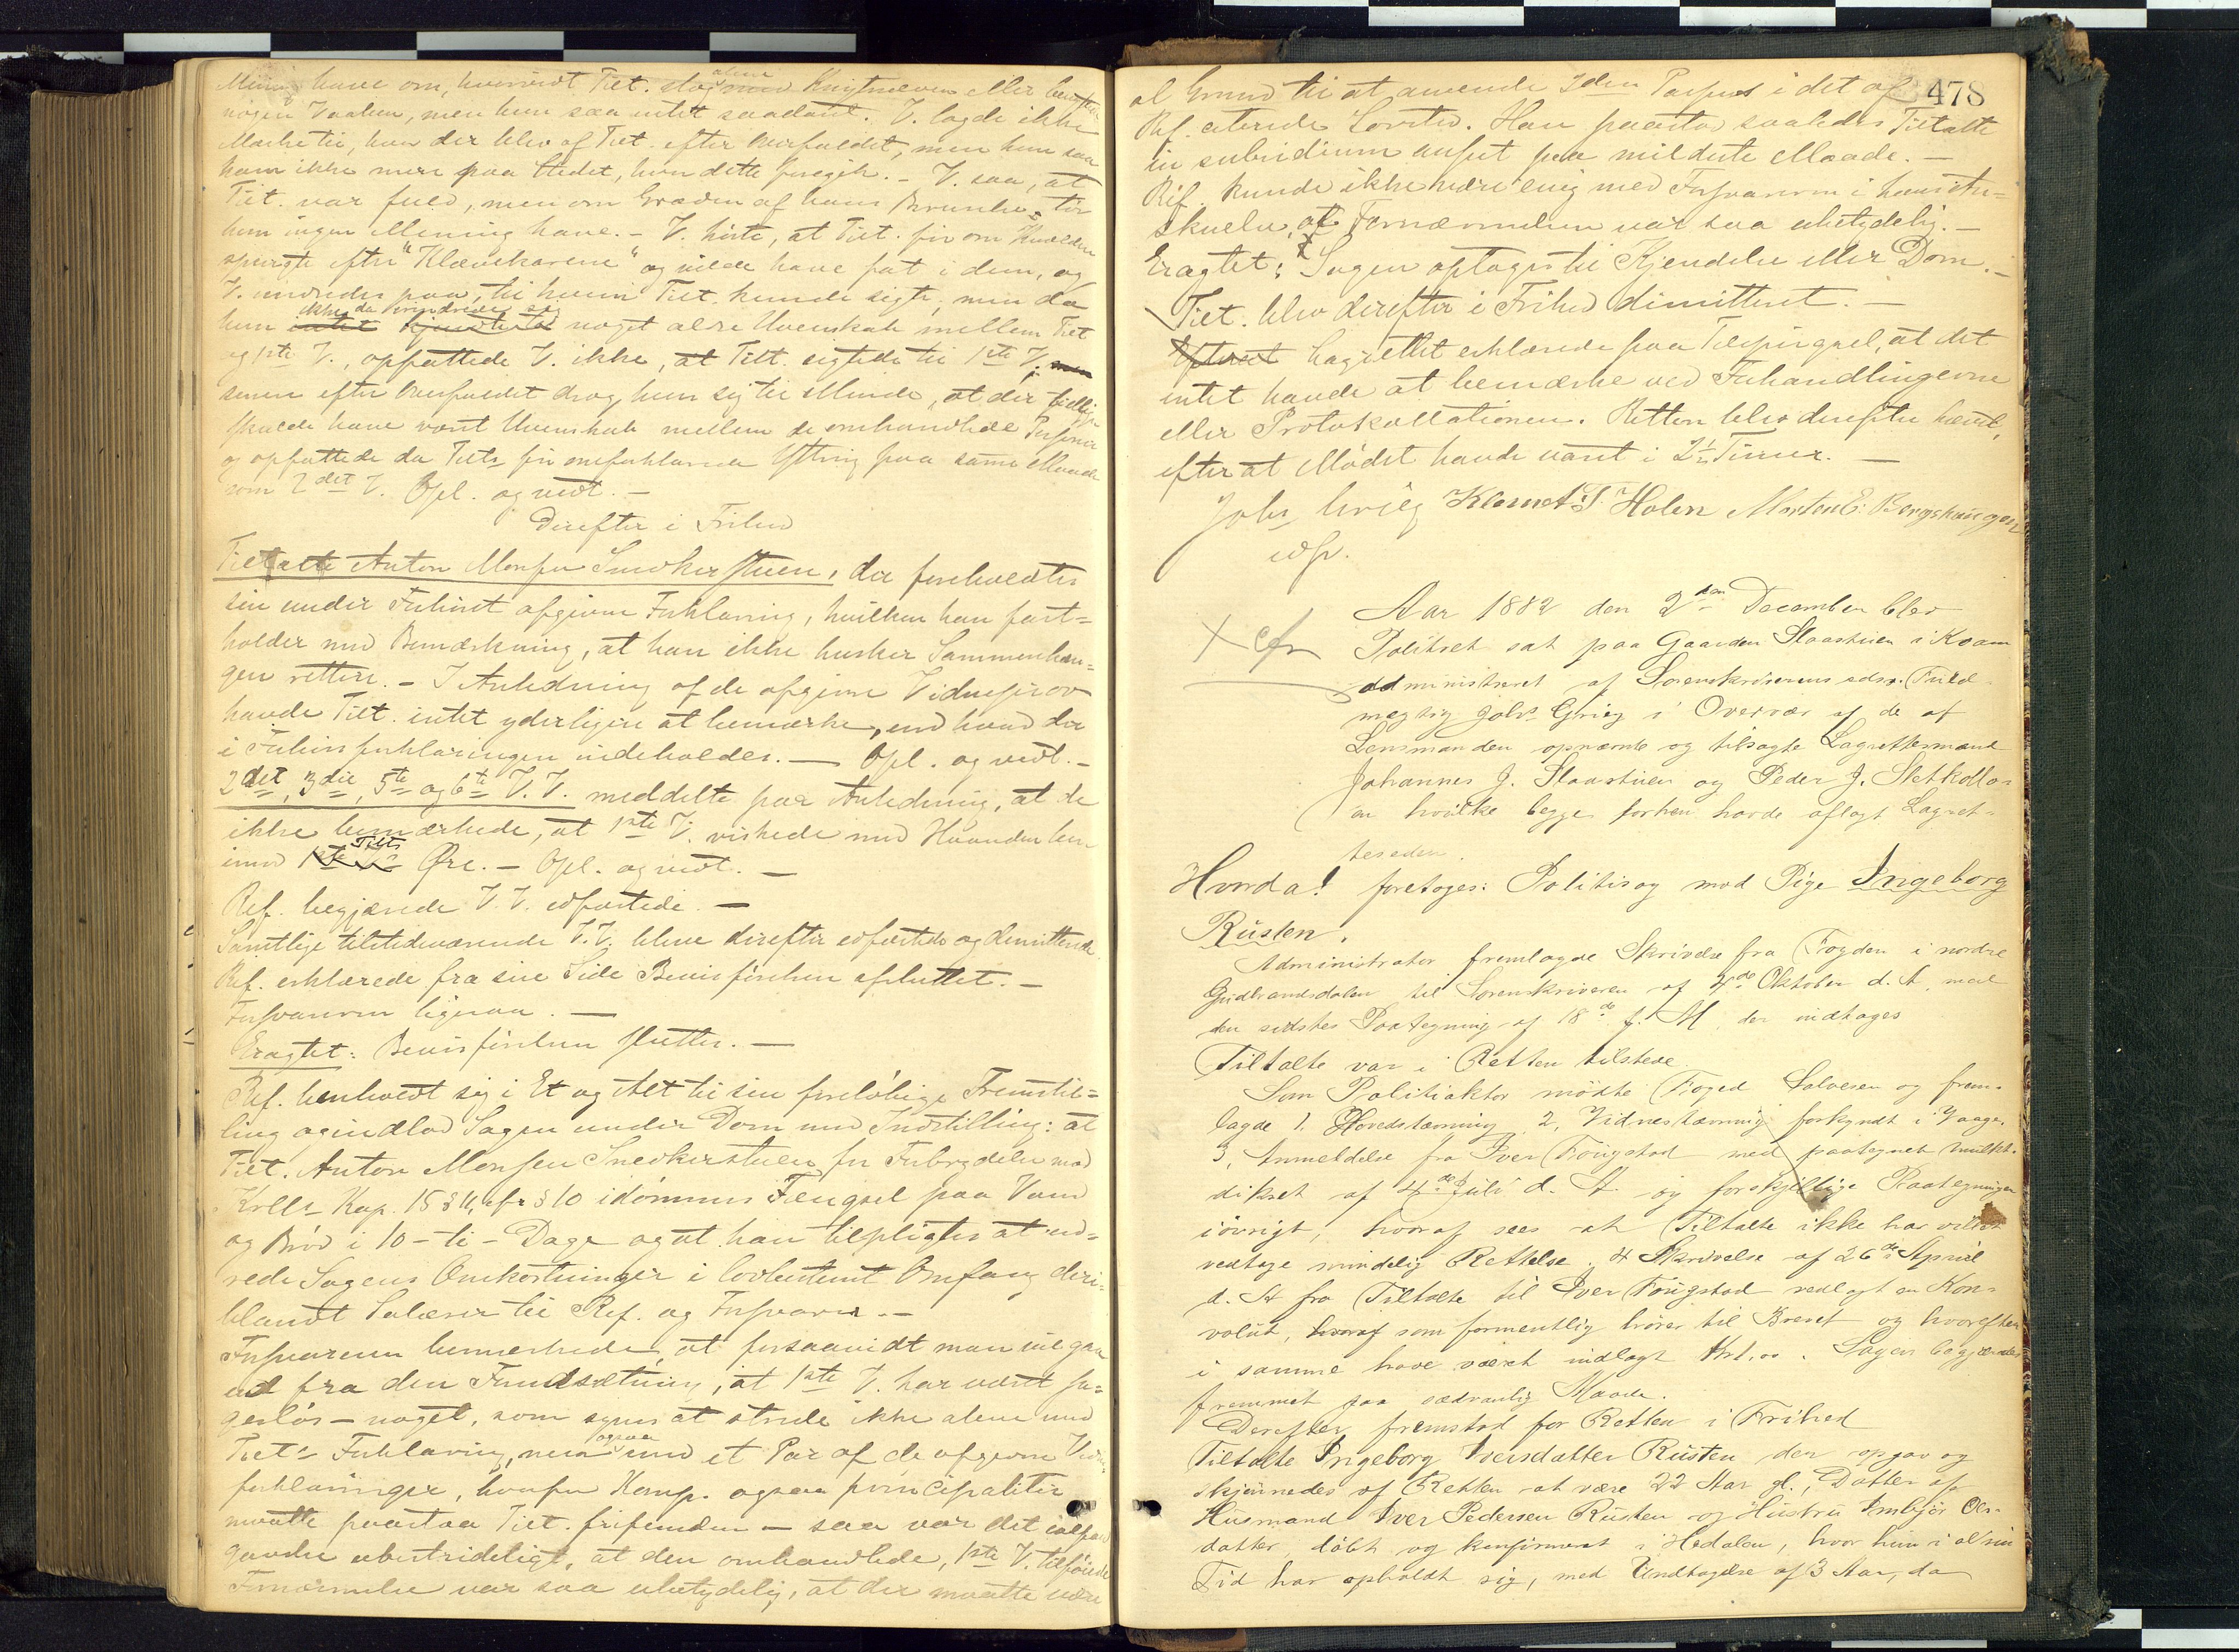 Mening have om, hvorvidt Tilt. slog alene med Knytnæven eller benyttede
nogen Vaaben, men hun saa intet saadant. V. lagde ikke
Mærke til, hvor der blev af Tilt. efter Overfaldet, men hun saa
ham ikke mere paa Stedet, hvor dette foregik. - V. saa, at
Tilt. var fuld, men om Graden af hans Beruselse tør
hun ingen Mening have. - V. hørte, at Tilt. før om Kvælden
spurgte efter "Klævekarene" og vilde have fat i dem, og
V. undredes paa, til hvem Tilt. kunde sigte, men da
hun ikke da erindrede sig noget ældre Uvenskab mellem Tilt
og 1ste V., opfattede V. ikke, at Tilt. sigtede til 1ste V.; men
senere efter Overfaldet drog hun sig til Minde, at der tidligere
skulde have været Uvenskab mellem de omhandlede Personer
og opfattede da Tilts før omforklarede Yttring paa samme Maade
som 2det V. Opl. og vedt. -
Derefter i Frihed
Tiltalte Anton Monsen Snedkerstuen, der foreholdtes
sin under Forhøret afgivne Forklaring, hvilken han fast=
holder med Bemærkning, at han ikke husker Sammenhæn=
gen rettere. - I Anledning af de afgivne Vidneprov
havde Tilt. intet yderligere at bemærke, end hvad der
i Forhørsforklaringen indeholdes. - Opl. og vedt. -
2det, 3die, 5te og 6te V.V. meddelte paa Anledning, at de
ikke bemærkede, at 1ste V. viskede med Haanden hen
imod 1ste V's Tilts Øre. - Opl. og vedt. -
Ref. begjærede V.V. edfæstede. -
Samtlige tilstedeværende V.V. bleve derefter edfæstede og demitterede
Ref. erklærede fra sin Side Bevisførelsen afsluttet. -
Forsvareren ligesaa. -
Eragtet: Bevisførelsen sluttes. -
Ref. henholdt sig i Et og Alt til sin foreløbige Fremstil=
ling og indlod Sagen under Dom med Indstilling: at
Tilt. Anton Monsen Snedkerstuen for Forbrydelse mod
Krlls Kap. 15 § 11, cfr § 10 idømmes Fængsel paa Vand
og Brød i 10 - ti - Dage og at han tilpligtes at ud=
rede Sagens Omkostninger i lovbestemt Omfang deri=
blandt Salærer til Ref. og Forsvarer. -
Forsvareren bemærkede, at forsaavidt man vil gaa
ud fra den Forudsætning, at 1ste V. har været sa=
gesløs - noget, som synes at stride ikke alene mod
Tilt's Forklaring, men ogsaa mod et Par af de afgivne Vidne
forklaringer, hvorfor Komp. ogsaa principaliter
maatte paastaa Tilt. frifunden - saa var det ialfald
ganske ubestrideligt, at den omhandlede, 1ste V. tilføiede
Fornærmelse var saa ubetydelig, at der maatte være
478
al Grund til at anvende 2den Passus i det af
Ref. citerede Lovsted. Han paastod saaledes Tiltalte
in subsidium anseet paa mildeste Maade. -
Ref. kunde ikke være enig med Forsvareren i hans An=
skuelse, at Fornærmelsen var saa ubetydelig. -
Eragtet: Sagen optages til Kjendelse eller Dom. -
Tilt. blev derefter i Frihed dimitteret. -
Efterat Lagrettet erklærede paa Tilspørgsel, at det
intet havde at bemærke ved Forhandlingerne
eller Protokollationen. Retten blev derefter hævet,
efter at Mødet havde varet i 2½ Timer. -
Johs Grieg Klemet T. Holen Morten E. Bergshaugen
edsv.
Aar 1882 den 2den December blev
+ cfr
Politiret sat paa Gaarden Slaastuen i Kvam
administreret af Sorenskriverens edsv. Fuld
mægtig Johs Grieg i Overvær af de af
Lensmanden opnævnte og tilsagte Lagrettesmænd
Johannes J. Slaastuen og Peder J. Sletkollo-
en hvilke begge forhen havde aflagt Lagret-
teseden.
Hvorda! foretoges: Politisag mod Pige Ingeborg
Rusten.
Administrator fremlagde Skrivelse fra Fogden i nordre
Gudbrandsdalen til Sorenskriveren af 4de Oktober d. A. med
den sidstes Paategning af 18de f. M. der indtages
Tiltalte var i Retten tilstede
Som Politiaktor mødte Foged Salvesen og frem-
lagde 1. Hovedstævning 2, Vidnestævning forkyndt i Vaage.
3, Anmeldelse fra Iver Fougstad med paategnet Mulkt-
dikret af 4de Juli d. A. og forskjellige Paategninger
iøvrigt, hvoraf sees at Tiltalte ikke har villet
vedtage mindelig Rettelse. 4 Skrivelse af 26de April
d. A. fra Tiltalte til Iver Fougstad vedlagt en Kon-
volut, hvoraf som formentlig hører til Brevet og hvorefter
i samme have været indlagt Kr 1,00. Sagen begjæredes
fremmet paa sædvanlig Maade.
Derefter fremstod for Retten i Frihed
Tiltalte Ingeborg Iversdatter Rusten der opgav og
skjønnedes af Retten at være 22 Aar gl., Datter af
Husmand Iver Pedersen Rusten og Hustru Imbjør Ols-
datter, døbt og konfirmeret i Hedalen, hvor hun i al sin
Tid har opholdt sig, med Undtagelse af 3 Aar, da